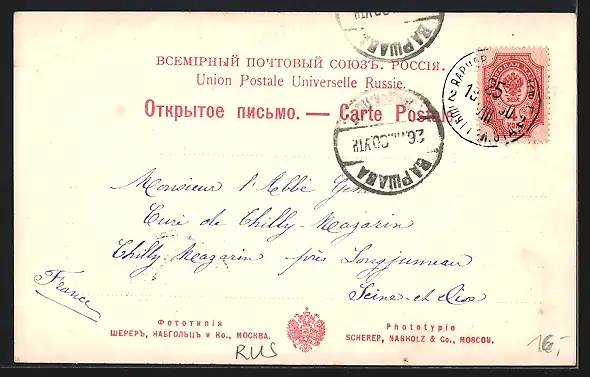 ВАРШАВА
ВСЕМІРНЫЙ ПОЧТОВЫЙ СОЮЗЪ. РОССІЯ.
Union Postale Universelle Russie.
Открытое письмо. — Carte Postale
ВАРШАВА
Monsieur l'Abbé
Curé de Chilly-Mazarin
Chilly-Mazarin près Longjumeau
Seine-et-Oise
France
Фототипія
ШЕРЕРЪ, НАБГОЛЬЦЪ и Ко., МОСКВА.
Phototypie
SCHERER, NABHOLZ & Co., MOSCOW.
RUS
16,-